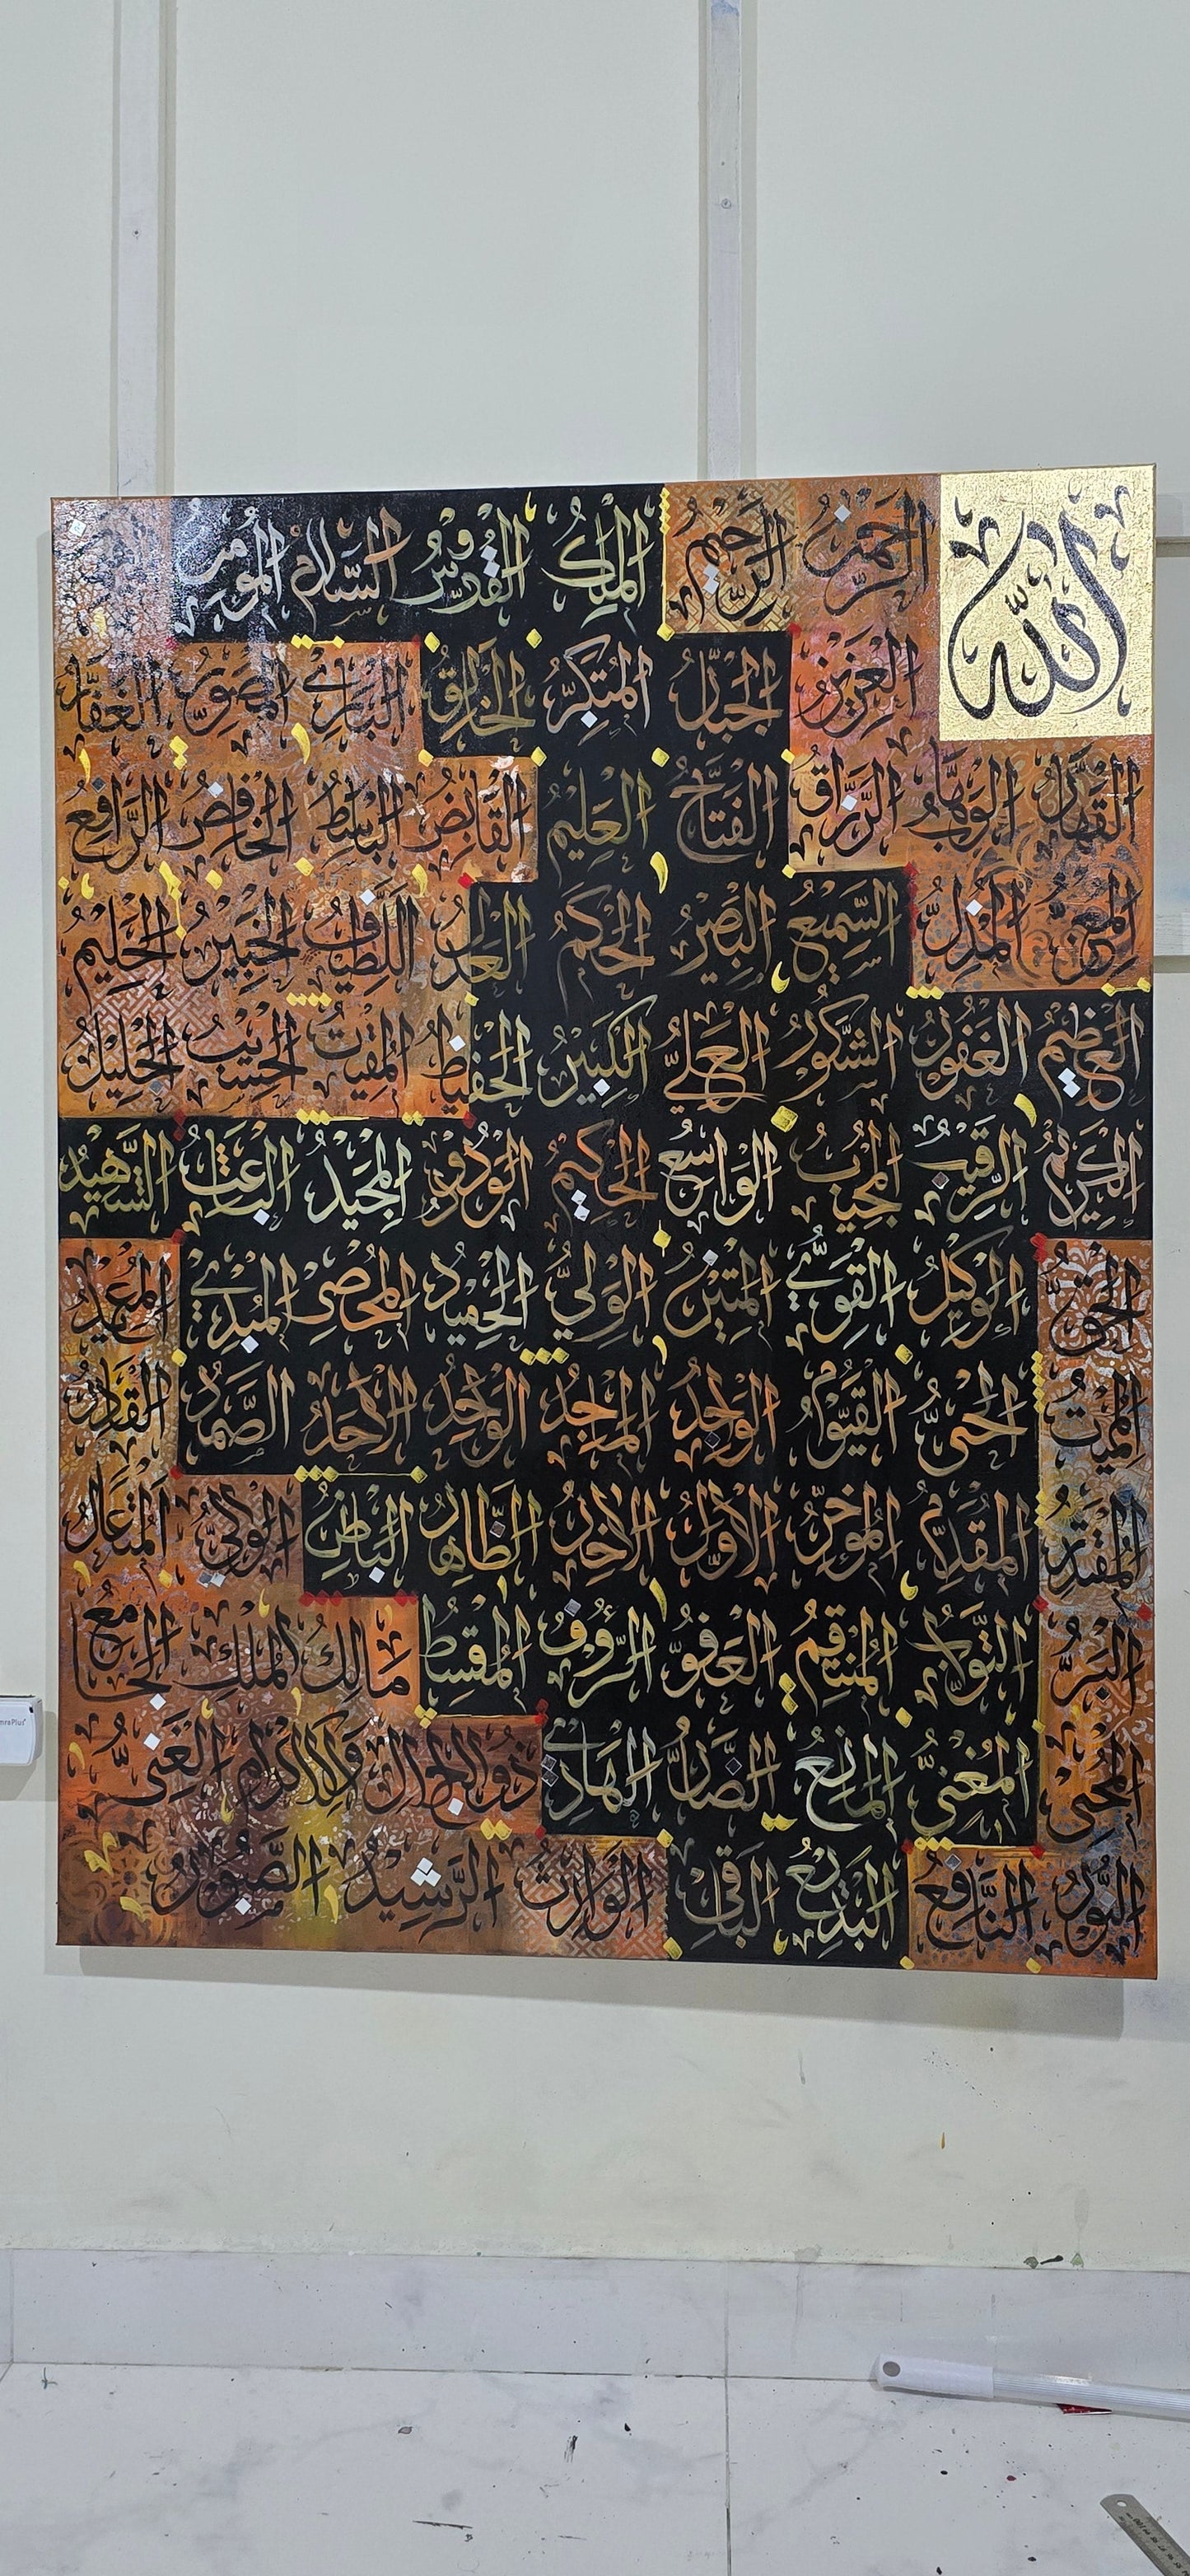 الله
الرَّحْمٰنُ الرَّحِيْمُ المَلِكُ القُدُّوْسُ السَّلَامُ المُؤْمِنُ
العَزِيْزُ الجَبَّارُ المُتَكَبِّرُ الخَالِقُ البَارِئُ المُصَوِّرُ الغَفَّارُ
القَهَّارُ الوَهَّابُ الرَّزَّاقُ الفَتَّاحُ العَلِيْمُ القَابِضُ البَاسِطُ الخَافِضُ الرَّافِعُ
المُعِزُّ المُذِلُّ السَّمِيْعُ البَصِيْرُ الحَكَمُ العَدْلُ اللَّطِيْفُ الخَبِيْرُ الحَلِيْمُ
العَظِيْمُ الغَفُوْرُ الشَّكُوْرُ العَلِيُّ الكَبِيْرُ الحَفِيْظُ المُقِيْتُ الحَسِيْبُ الجَلِيْلُ
الكَرِيْمُ الرَّقِيْبُ المُجِيْبُ الوَاسِعُ الحَكِيْمُ الوَدُوْدُ المَجِيْدُ البَاعِثُ الشَّهِيْدُ
الحَقُّ الوَكِيْلُ القَوِيُّ المَتِيْنُ الوَلِيُّ الحَمِيْدُ المُحْصِيْ المُبْدِئُ المُعِيْدُ
المُمِيْتُ الحَيُّ القَيُّوْمُ الوَاجِدُ المَاجِدُ الوَاحِدُ الاَحَدُ الصَّمَدُ القَادِرُ
المُقْتَدِرُ المُقَدِّمُ المُؤَخِّرُ الاَوَّلُ الاٰخِرُ الظَّاهِرُ البَاطِنُ الوَالِيُ المُتَعَالُ
البَرُّ التَّوَّابُ المُنْتَقِمُ العَفُوُّ الرَّؤُوْفُ المُقْسِطُ مَالِكُ المُلْكِ الجَامِعُ
المُحْيُ المُغْنِيُّ المَانِعُ الضَّارُّ الهَادِيْ ذُوالجَلَالِ وَالاِكْرَامِ الغَنِيُّ
النُّوْرُ النَّافِعُ البَدِيْعُ البَاقِيْ الوَارِثُ الرَّشِيْدُ الصَّبُوْرُ